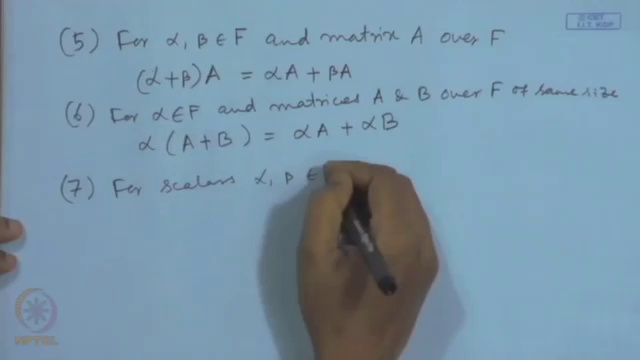 (5) For α, β ∈ F and matrix A over F
(α+β)A = αA + βA
(6) For α∈F and matrices A & B over F of same size
α (A+B) = αA + αB
(7) For scalars α, β ∈
NPTEL